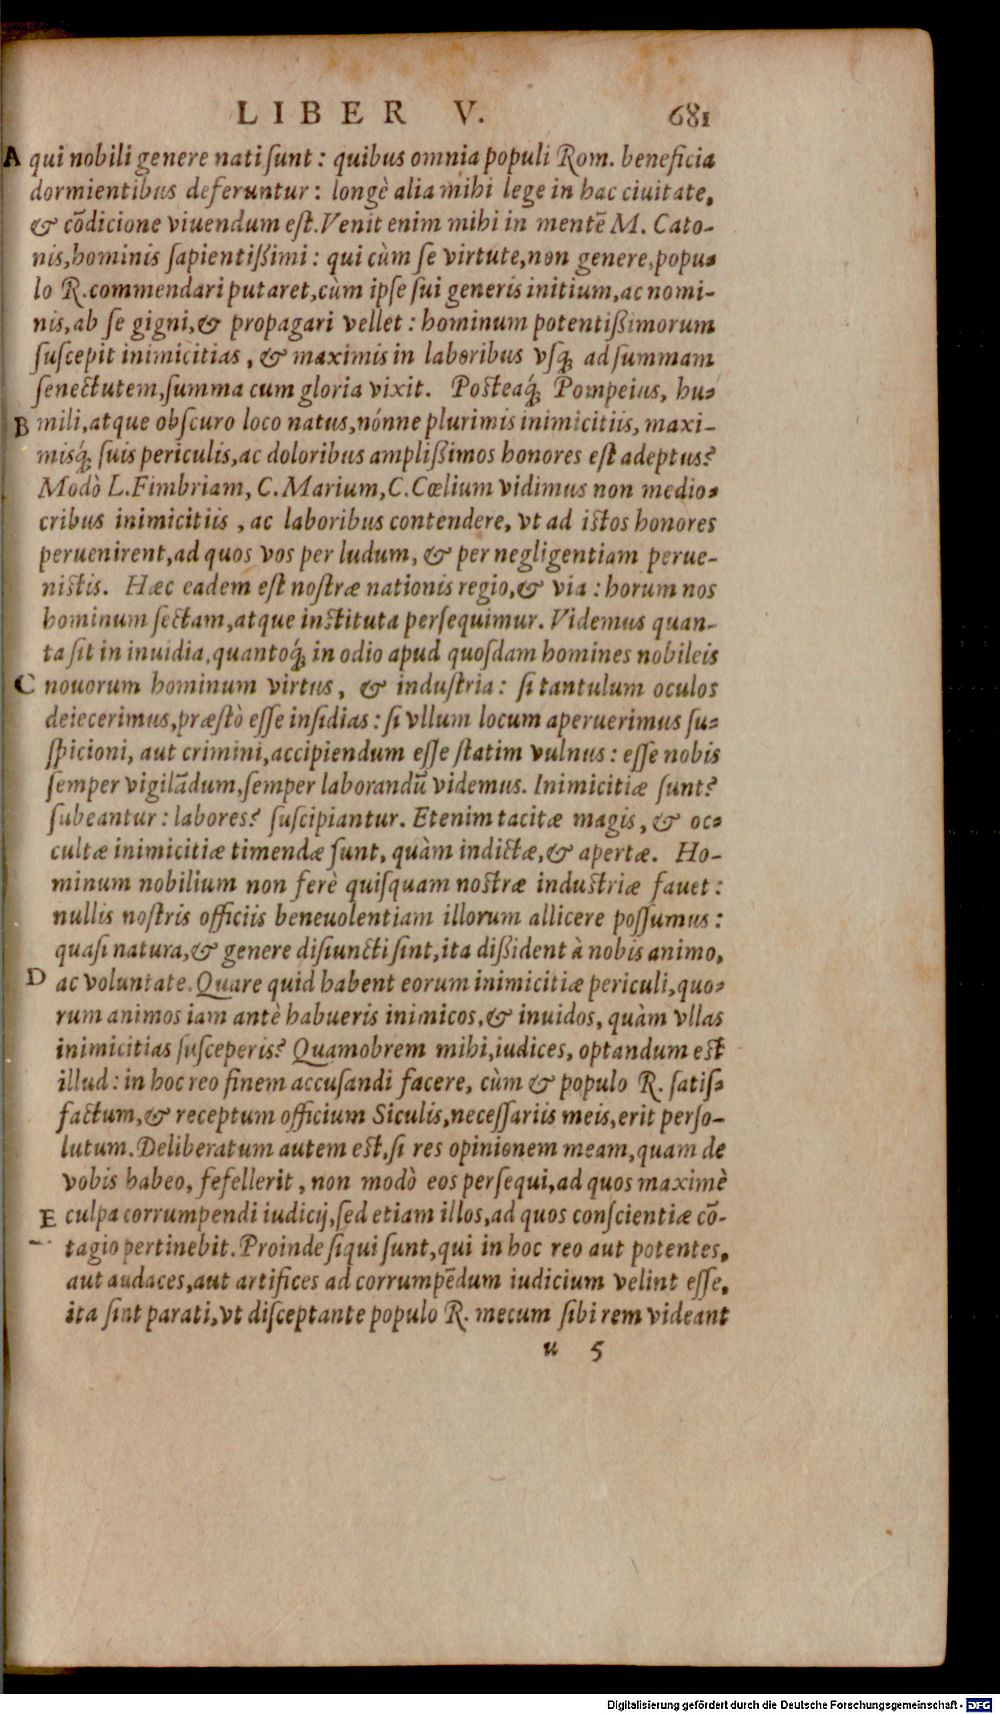 LIBER V. 681
A qui nobili genere nati sunt: quibus omnia populi Rom. beneficia
dormientibus deferuntur: longè alia mihi lege in hac ciuitate,
& cõdicione viuendum est. Venit enim mihi in mentẽ M. Cato-
nis, hominis sapientißimi: qui cùm se virtute, non genere, popu-
lo R. commendari putaret, cùm ipse sui generis initium, ac nomi-
nis, ab se gigni, & propagari vellet: hominum potentißimorum
suscepit inimicitias, & maximis in laboribus vsq; ad summam
senectutem, summa cum gloria vixit. Posteaq́; Pompeius, hu-
B mili, atque obscuro loco natus, nónne plurimis inimicitiis, maxi-
misq́; suis periculis, ac doloribus amplißimos honores est adeptus?
Modò L. Fimbriam, C. Marium, C. Cœlium vidimus non medio-
cribus inimicitiis, ac laboribus contendere, vt ad istos honores
peruenirent, ad quos vos per ludum, & per negligentiam perue-
nistis. Hæc eadem est nostræ nationis regio, & via: horum nos
hominum sectam, atque instituta persequimur. Videmus quan-
ta sit in inuidia, quantoq́; in odio apud quosdam homines nobileis
C nouorum hominum virtus, & industria: si tantulum oculos
deiecerimus, præstò esse insidias: si vllum locum aperuerimus su-
spicioni, aut crimini, accipiendum esse statim vulnus: esse nobis
semper vigilãdum, semper laborandũ videmus. Inimicitiæ sunt?
subeantur: labores? suscipiantur. Etenim tacitæ magis, & oc-
cultæ inimicitiæ timendæ sunt, quàm indictæ, & apertæ. Ho-
minum nobilium non ferè quisquam nostræ industriæ fauet:
nullis nostris officiis beneuolentiam illorum allicere possumus:
quasi natura, & genere disiuncti sint, ita dißident à nobis animo,
D ac voluntate. Quare quid habent eorum inimicitiæ periculi, quo-
rum animos iam antè habueris inimicos, & inuidos, quàm vllas
inimicitias susceperis? Quamobrem mihi, iudices, optandum est
illud: in hoc reo finem accusandi facere, cùm & populo R. satis-
factum, & receptum officium Siculis, necessariis meis, erit perso-
lutum. Deliberatum autem est, si res opinionem meam, quam de
vobis habeo, fefellerit, non modò eos persequi, ad quos maximè
E culpa corrumpendi iudicij, sed etiam illos, ad quos conscientiæ cõ-
tagio pertinebit. Proinde siqui sunt, qui in hoc reo aut potentes,
aut audaces, aut artifices ad corrumpẽdum iudicium velint esse,
ita sint parati, vt disceptante populo R. mecum sibi rem videant
u 5
Digitalisierung gefördert durch die Deutsche Forschungsgemeinschaft - DFG